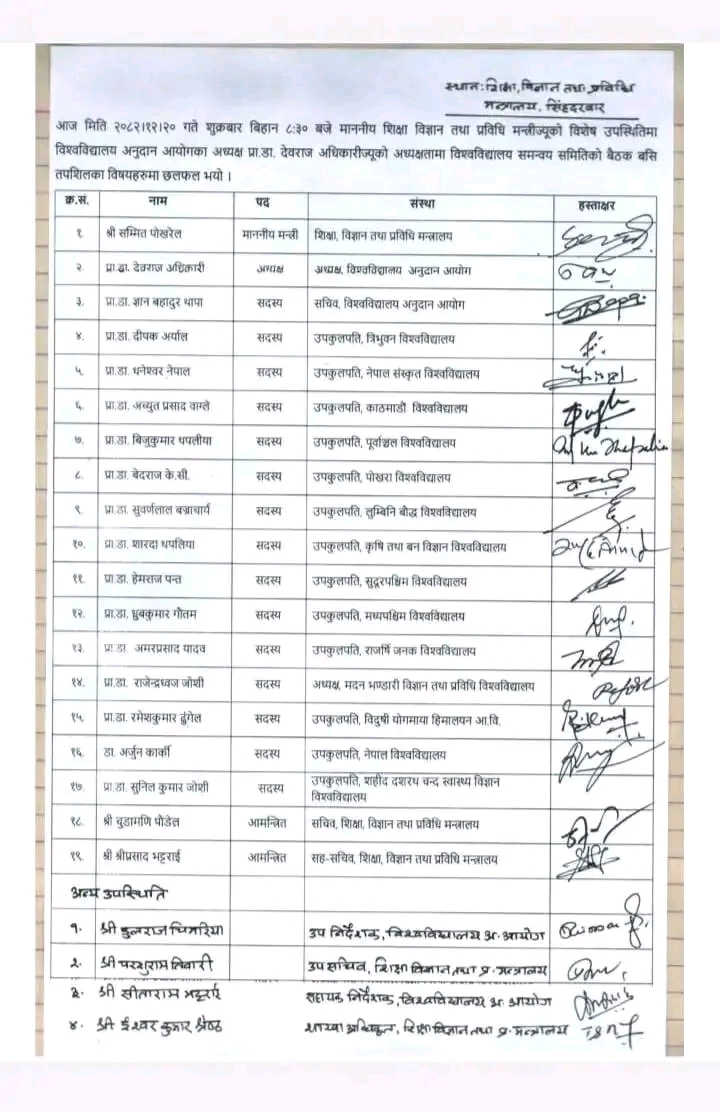 स्थान: शिक्षा, विज्ञान तथा प्रविधि
मन्त्रालय, सिंहदरबार
आज मिति २०८२।१२।२० गते शुक्रबार बिहान ८:३० बजे माननीय शिक्षा विज्ञान तथा प्रविधि मन्त्रीज्यूको विशेष उपस्थितिमा
विश्वविद्यालय अनुदान आयोगका अध्यक्ष प्रा.डा. देवराज अधिकारीज्यूको अध्यक्षतामा विश्वविद्यालय समन्वय समितिको बैठक बसि
तपशिलका विषयहरुमा छलफल भयो ।
क्र.सं. नाम पद संस्था हस्ताक्षर
१ श्री सम्मित पोखरेल माननीय मन्त्री शिक्षा, विज्ञान तथा प्रविधि मन्त्रालय
२. प्रा.डा. देवराज अधिकारी अध्यक्ष अध्यक्ष, विश्वविद्यालय अनुदान आयोग
३. प्रा.डा. ज्ञान बहादुर थापा सदस्य सचिव, विश्वविद्यालय अनुदान आयोग
४. प्रा.डा. दीपक अर्याल सदस्य उपकुलपति, त्रिभुवन विश्वविद्यालय
५. प्रा.डा. धनेश्वर नेपाल सदस्य उपकुलपति, नेपाल संस्कृत विश्वविद्यालय
६. प्रा.डा. अच्युत प्रसाद वाग्ले सदस्य उपकुलपति, काठमाडौं विश्वविद्यालय
७. प्रा.डा. बिजुकुमार थपलीया सदस्य उपकुलपति, पूर्वाञ्चल विश्वविद्यालय
८. प्रा.डा. बेदराज के.सी. सदस्य उपकुलपति, पोखरा विश्वविद्यालय
९. प्रा.डा. सुवर्णलाल बज्राचार्य सदस्य उपकुलपति, लुम्बिनि बौद्ध विश्वविद्यालय
१०. प्रा.डा. शारदा थपलिया सदस्य उपकुलपति, कृषि तथा बन विज्ञान विश्वविद्यालय
११. प्रा.डा. हेमराज पन्त सदस्य उपकुलपति, सुदूरपश्चिम विश्वविद्यालय
१२. प्रा.डा. ध्रुबकुमार गौतम सदस्य उपकुलपति, मध्यपश्चिम विश्वविद्यालय
१३. प्रा.डा. अमरप्रसाद यादव सदस्य उपकुलपति, राजर्षि जनक विश्वविद्यालय
१४. प्रा.डा. राजेन्द्रध्वज जोशी सदस्य अध्यक्ष, मदन भण्डारी विज्ञान तथा प्रविधि विश्वविद्यालय
१५. प्रा.डा. रमेशकुमार ढुंगेल सदस्य उपकुलपति, विदुषी योगमाया हिमालयन आ.वि.
१६. डा. अर्जुन कार्की सदस्य उपकुलपति, नेपाल विश्वविद्यालय
१७. प्रा.डा. सुनिल कुमार जोशी सदस्य उपकुलपति, शहीद दशरथ चन्द स्वास्थ्य विज्ञान
विश्वविद्यालय
१८. श्री चुडामणि पौडेल आमन्त्रित सचिव, शिक्षा, विज्ञान तथा प्रविधि मन्त्रालय
१९. श्री श्रीप्रसाद भट्टराई आमन्त्रित सह-सचिव, शिक्षा, विज्ञान तथा प्रविधि मन्त्रालय
अन्य उपस्थिति
१. श्री कुलराज चिमरिया उप निर्देशक, विश्वविद्यालय अ. आयोग
२. श्री परशुराम तिवारी उप सचिव, शिक्षा विज्ञान तथा प्र. मन्त्रालय
३. श्री सीताराम भट्टराई सहायक निर्देशक, विश्वविद्यालय अ. आयोग
४. श्री ईश्वर कुमार श्रेष्ठ शाखा अधिकृत, शिक्षा विज्ञान तथा प्र. मन्त्रालय